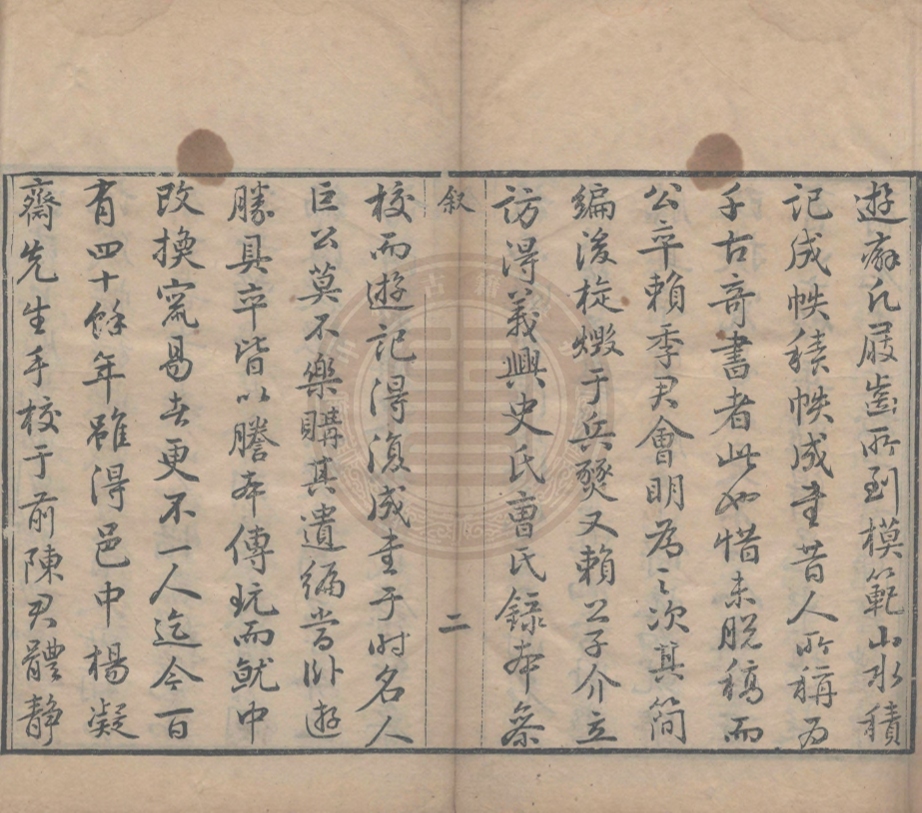 遊癖凡屐齒所到模範山水積
記成帙積帙成書昔人所稱為
千古奇書者此也惜未脫稿而
公卒賴季君會明為之次其簡
編後旋燬于兵燹又賴公子介立
訪得義興史氏曹氏錄本叅
叙
二
校而遊記得復成書于時名人
巨公莫不樂購其遺編當卧遊
勝具卒皆以謄本傳玩而就中
改換竄易者更不一人迄今百
有四十餘年雖得邑中楊凝
齋先生手校于前陳君體靜